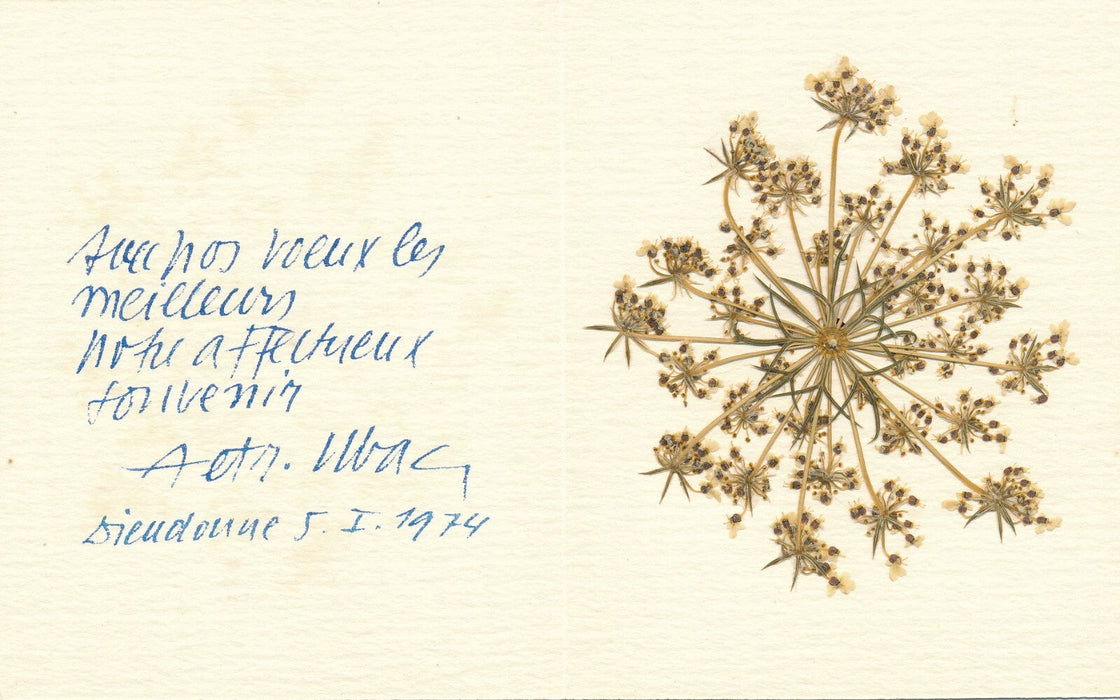 Avec nos voeux les
meilleurs
notre affectueux
souvenir
A et R. Ubac
Dieudonne 5. I. 1974